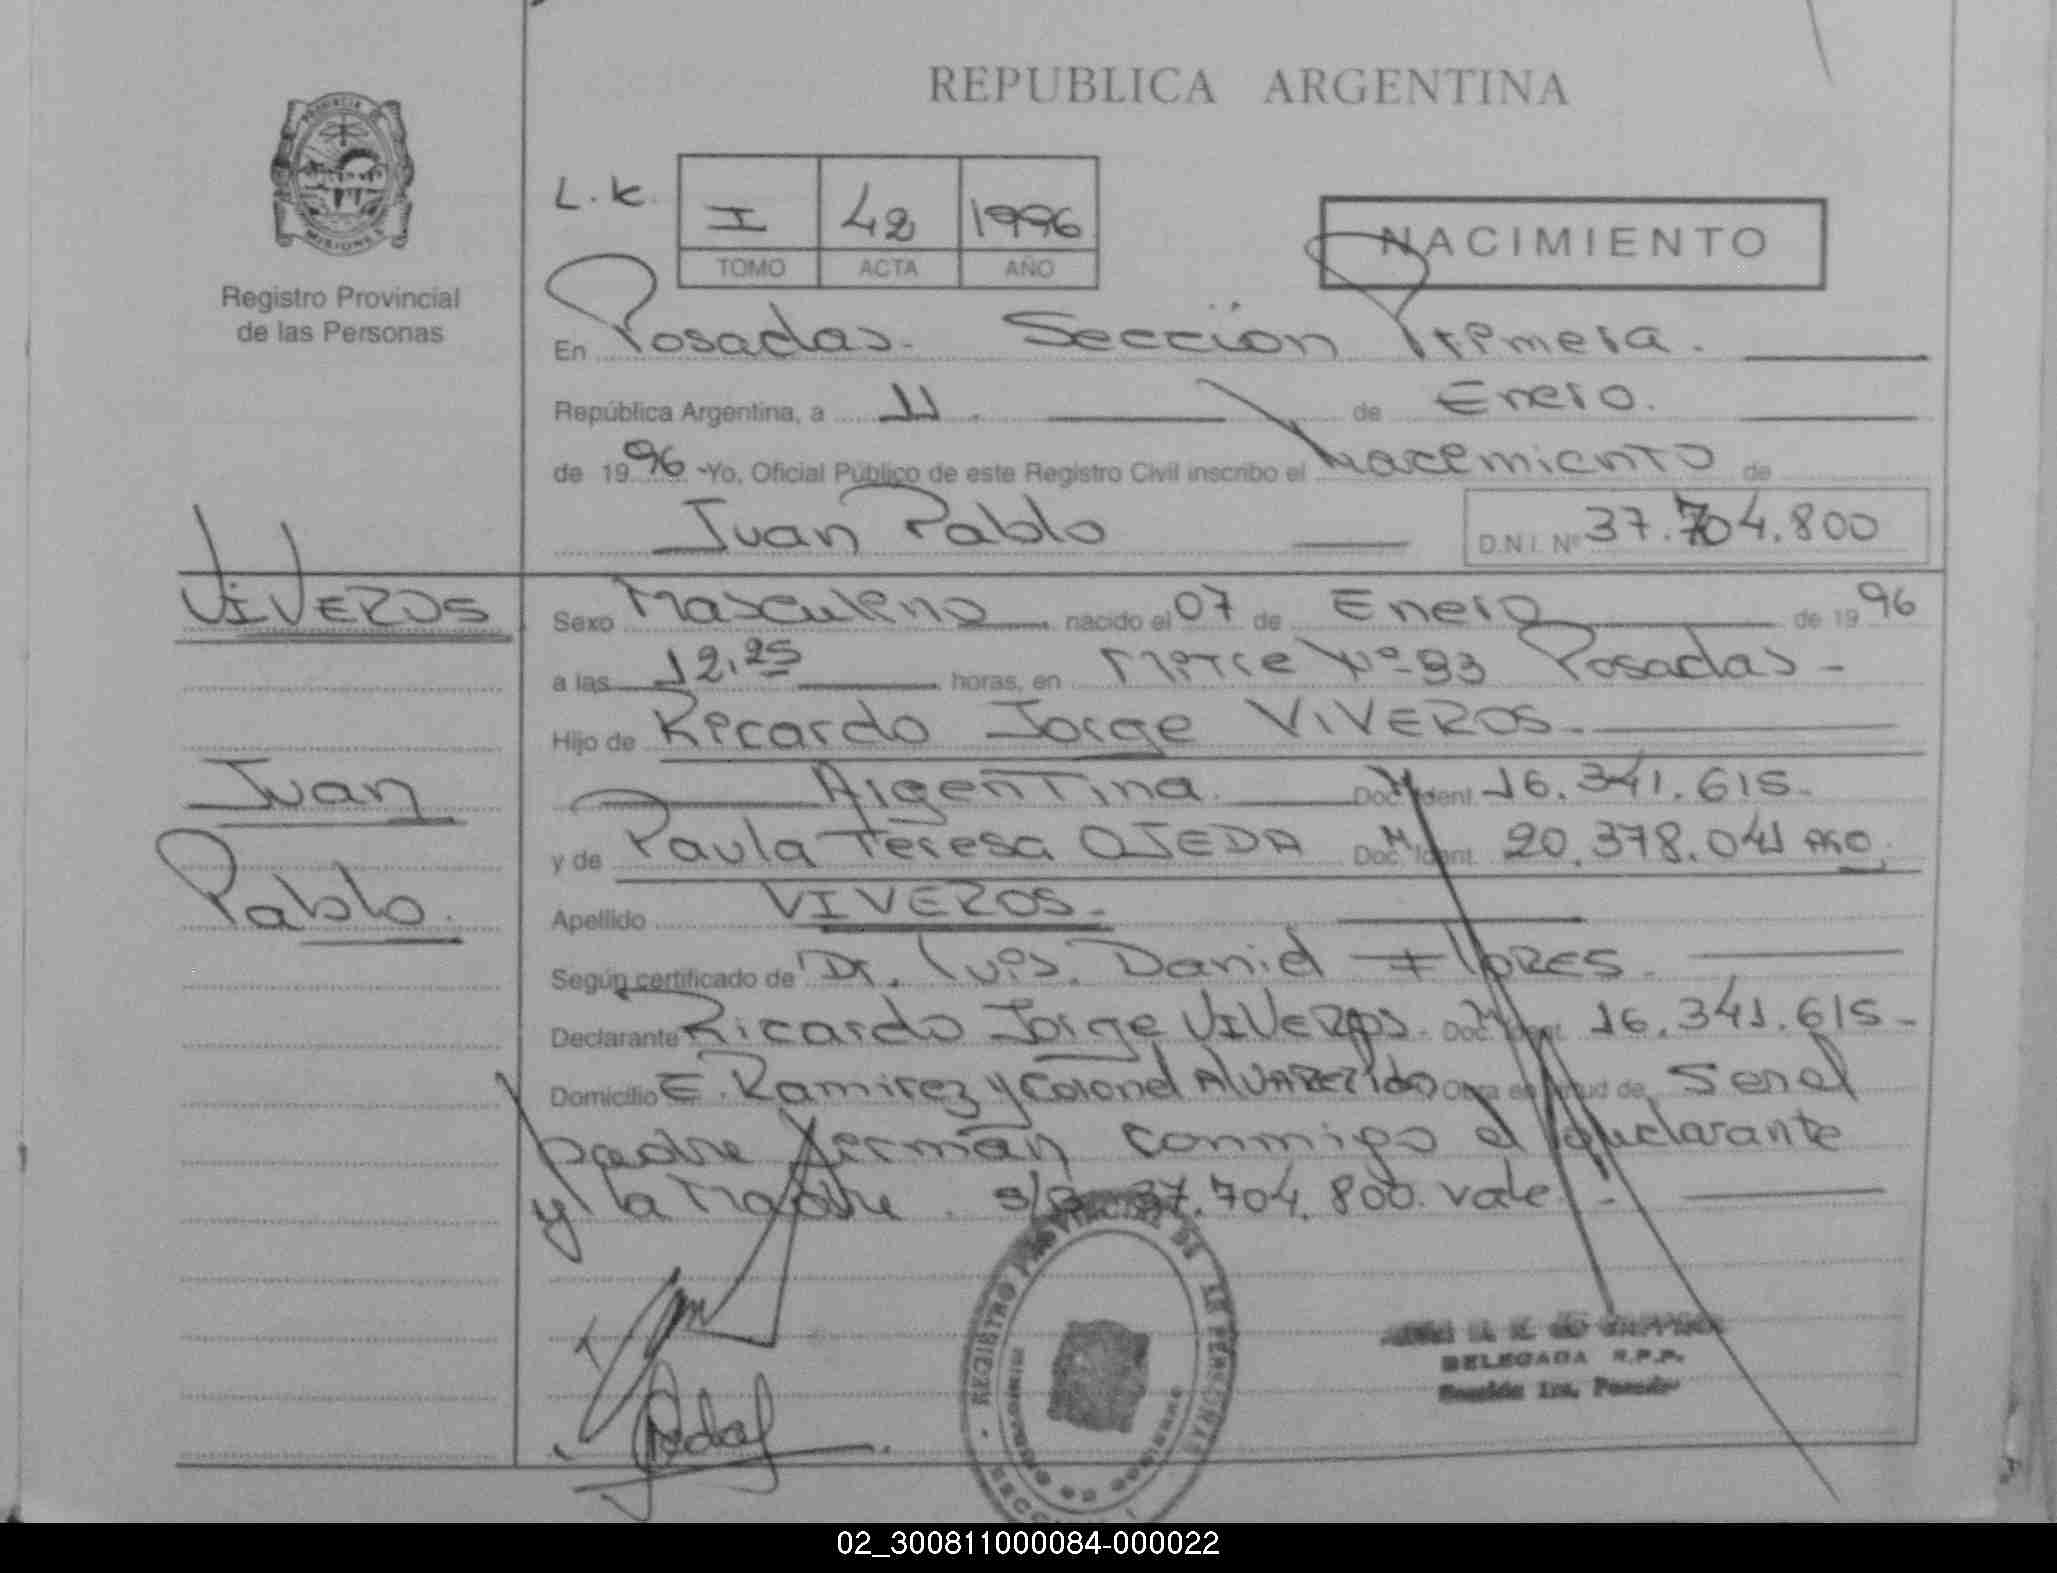 REPUBLICA ARGENTINA
PROVINCIA DE
MISIONES
Registro Provincial
de las Personas
L.K.
I 42 1996
TOMO ACTA AÑO
NACIMIENTO
En Posadas. Sección Primera.
República Argentina, a 11. de Enero.
de 1996 -Yo, Oficial Público de este Registro Civil inscribo el Nacimiento de
Juan Pablo
D.N.I. Nº 37.704.800
VIVEROS
Juan
Pablo.
Sexo Masculino nacido el 07 de Enero de 1996
a las 12.25 horas, en Nº 93 Posadas -
Hijo de Ricardo Jorge VIVEROS.
Argentina. Doc. Ident. M 16.341.615.
y de Paula Teresa OJEDA Doc. Ident. M 20.378.041 ARG.
Apellido VIVEROS.
Según certificado de Dr. Luis Daniel FlORES.
Declarante Ricardo Jorge VIVEROS. Doc. Ident. M 16.341.615-
Domicilio E. Ramirez y Coronel Obra en virtud de Ser el
padre firman conmigo el declarante
y la Madre. s/b 37.704.800. vale. -
REGISTRO PROVINCIAL DE LAS PERSONAS
DELEGADA R.P.P.
Sección 1ra. Posadas
02_300811000084-000022